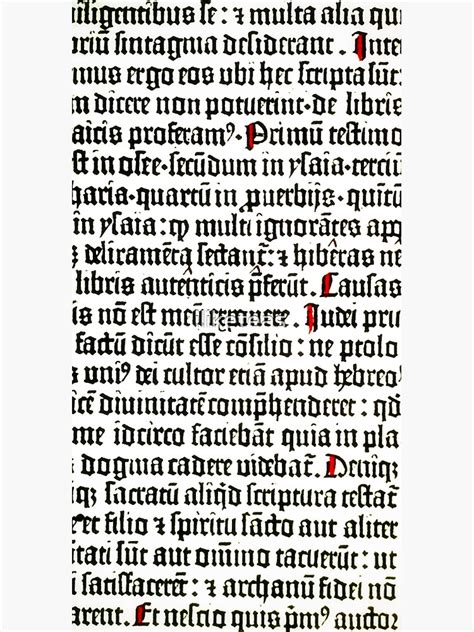 iligentibus se: ⁊ multa alia qu
riū sintagma desiderant. Inte
mus ergo eos ubi hec scripta sūt:
n dicere non potuerint·de libris
aicis proferam⁹. Primū testimo
st in osee·secūdum in ysaia·terciū
haria·quartū in ꝓuerbijs·quītū
in ysaia: qꝫ multi ignorātes app
⁊ deliramēta sectant᷑: ⁊ hiberas ne
libris autēticis p̄ferūt. Causas
is nō est meū exponere. Judei pru
factū dicūt esse cōsilio: ne ptolo
⁊ uni⁹ dei cultor etiā apud hebreo
icē divinitatē comp̄henderet: qđ
me idcirco faciebāt quia in pla
⁊ dogma cadere videbat᷑. Deniqꝫ
iqꝫ sacratū aliqđ scriptura testat᷑
et filio ⁊ spiritu sācto aut aliter
itati sūt aut omīno tacuerūt: ut
i satisfacerēt: ⁊ archanū fidei nō
arent. Et nescio quis p̄m⁹ auctor